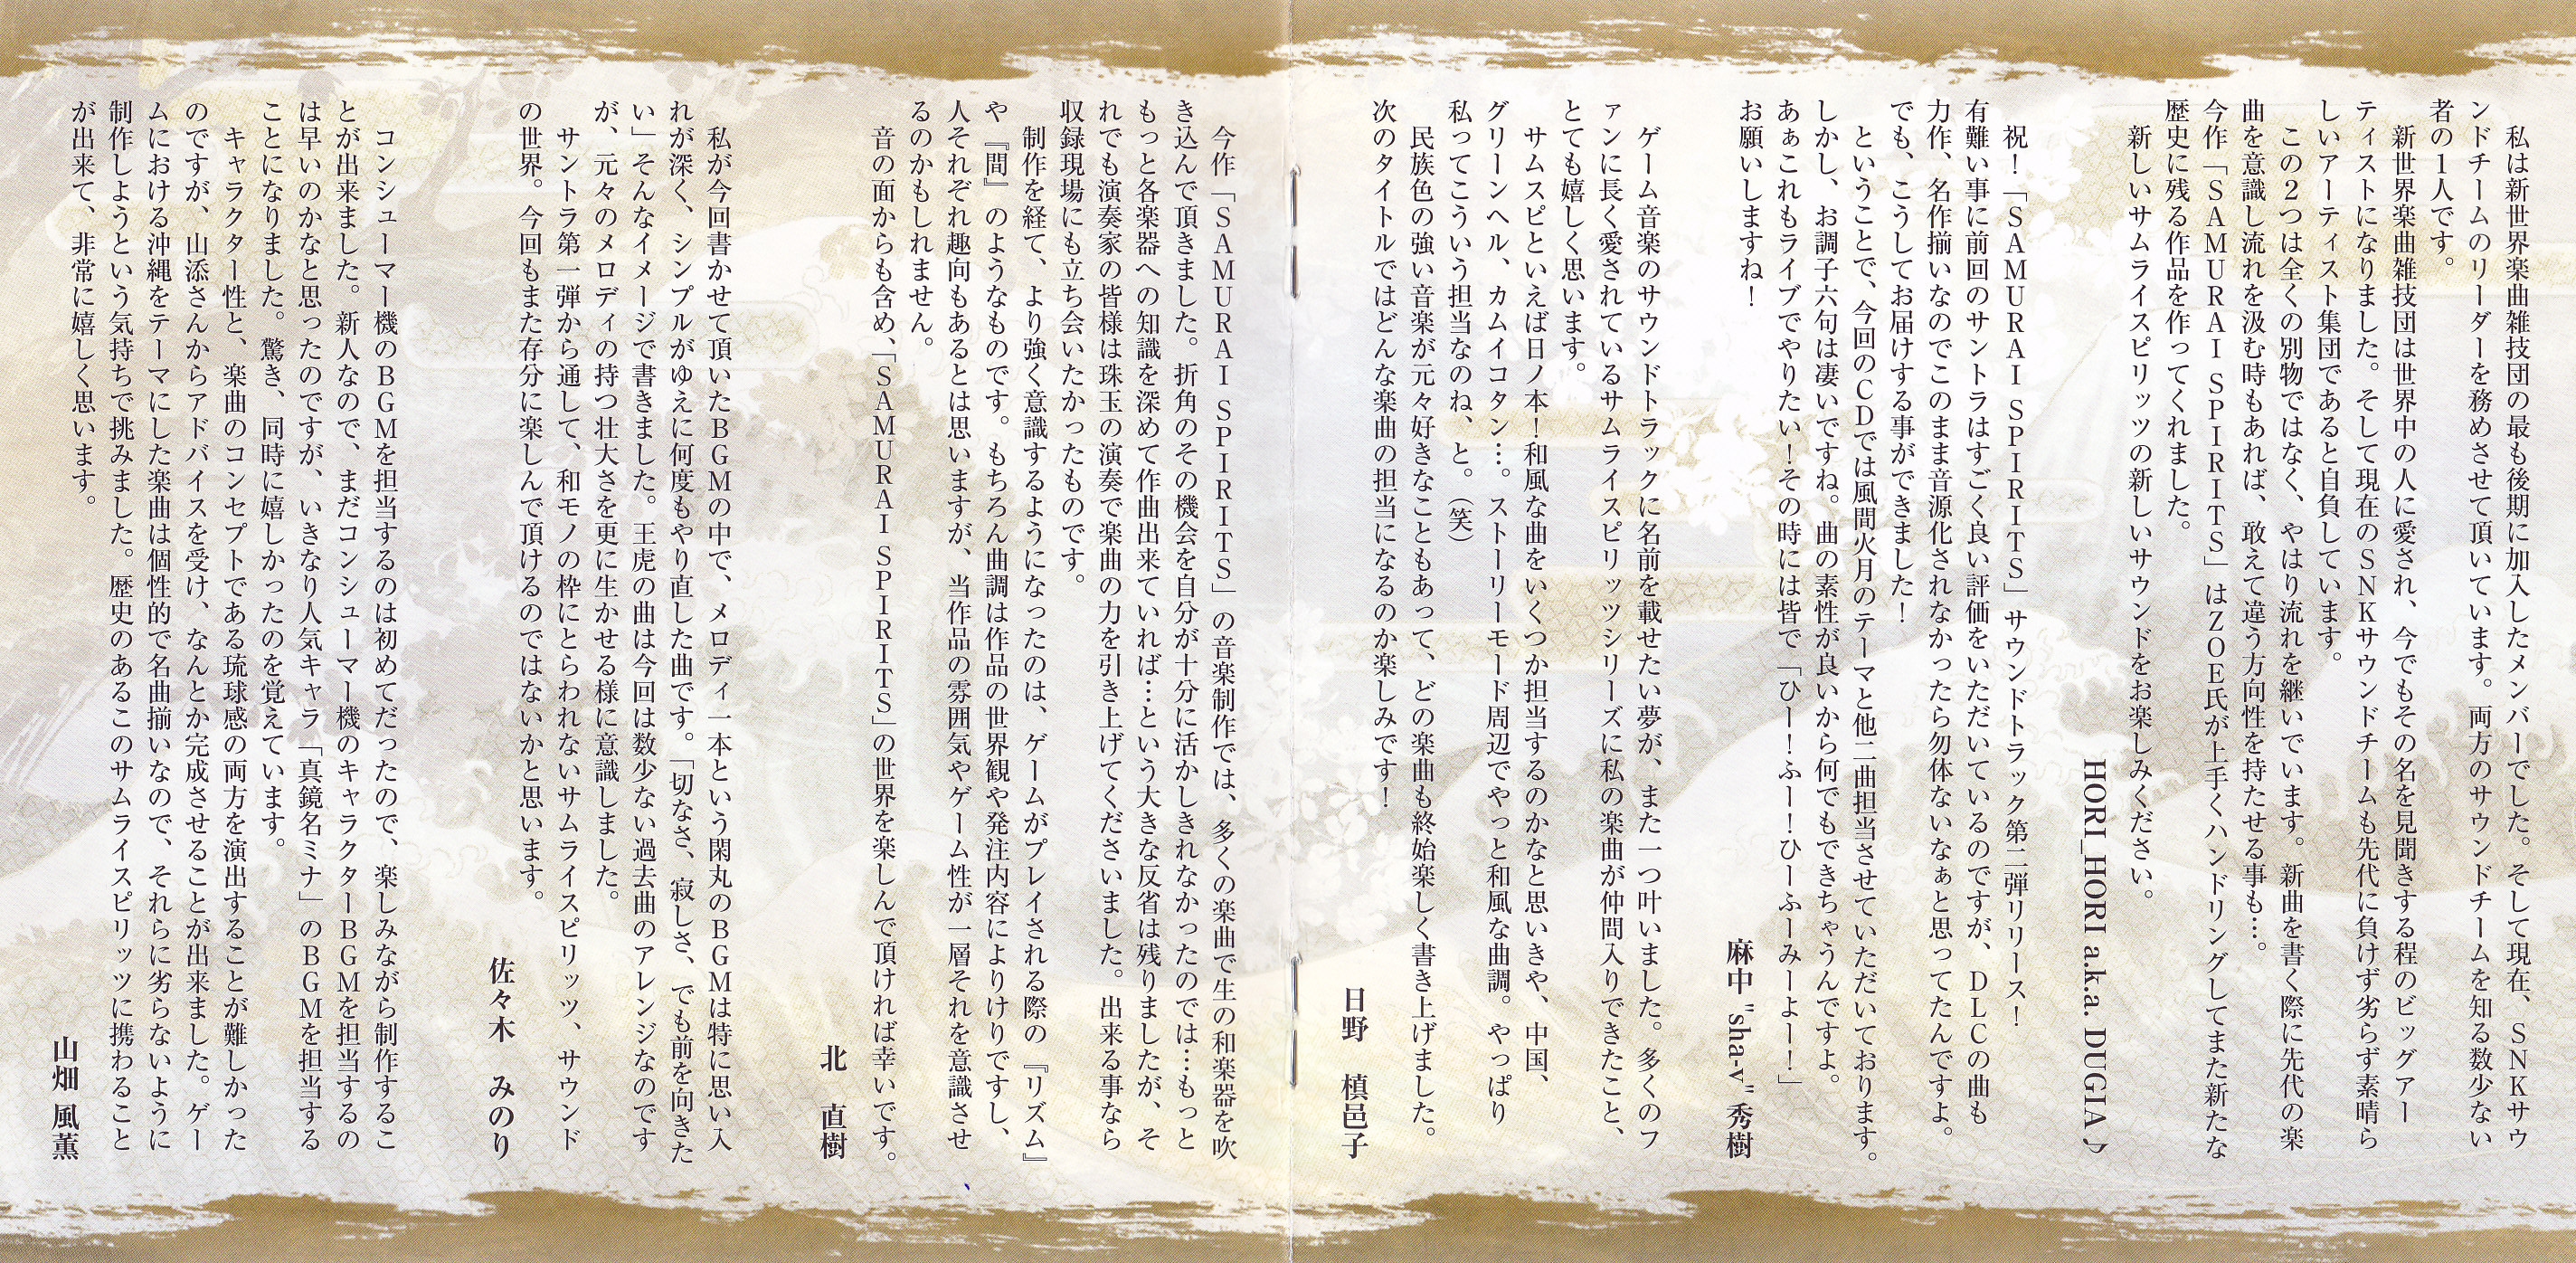 私は新世界楽曲雑技団の最も後期に加入したメンバーでした。そして現在、SNKサウ
ンドチームのリーダーを務めさせて頂いています。両方のサウンドチームを知る数少ない
者の1人です。
新世界楽曲雑技団は世界中の人に愛され、今でもその名を見聞きする程のビッグアー
ティストになりました。そして現在のSNKサウンドチームも先代に負けず劣らず素晴ら
しいアーティスト集団であると自負しています。
この2つは全くの別物ではなく、やはり流れを継いでいます。新曲を書く際に先代の楽
曲を意識し流れを汲む時もあれば、敢えて違う方向性を持たせる事も…。
今作「SAMURAI SPIRITS」はZOE氏が上手くハンドリングしてまた新たな
歴史に残る作品を作ってくれました。
新しいサムライスピリッツの新しいサウンドをお楽しみください。
HORI_HORI a.k.a. DUGIA♪
祝！「SAMURAI SPIRITS」サウンドトラック第二弾リリース！
有難い事に前回のサントラはすごく良い評価をいただいているのですが、DLCの曲も
力作、名作揃いなのでこのまま音源化されなかったら勿体ないなぁと思ってたんですよ。
でも、こうしてお届けする事ができました！
ということで、今回のCDでは風間火月のテーマと他二曲担当させていただいております。
しかし、お調子六句は凄いですね。曲の素性が良いから何でもできちゃうんですよ。
あぁこれもライブでやりたい！その時には皆で「ひー！ふー！ひーふーみーよー！」
お願いしますね！
麻中 "sha-v" 秀樹
ゲーム音楽のサウンドトラックに名前を載せたい夢が、また一つ叶いました。多くのフ
ァンに長く愛されているサムライスピリッツシリーズに私の楽曲が仲間入りできたこと、
とても嬉しく思います。
サムスピといえば日ノ本！和風な曲をいくつか担当するのかなと思いきや、中国、
グリーンヘル、カムイコタン…。ストーリーモード周辺でやっと和風な曲調。やっぱり
私ってこういう担当なのね、と。（笑）
民族色の強い音楽が元々好きなこともあって、どの楽曲も終始楽しく書き上げました。
次のタイトルではどんな楽曲の担当になるのか楽しみです！
日野 槙邑子
今作「SAMURAI SPIRITS」の音楽制作では、多くの楽曲で生の和楽器を吹
き込んで頂きました。折角のその機会を自分が十分に活かしきれなかったのでは…もっと
もっと各楽器への知識を深めて作曲出来ていれば…という大きな反省は残りましたが、そ
れでも演奏家の皆様は珠玉の演奏で楽曲の力を引き上げてくださいました。出来る事なら
収録現場にも立ち会いたかったものです。
制作を経て、より強く意識するようになったのは、ゲームがプレイされる際の『リズム』
や『間』のようなものです。もちろん曲調は作品の世界観や発注内容によりけりですし、
人それぞれ趣向もあるとは思いますが、当作品の雰囲気やゲーム性が一層それを意識させ
るのかもしれません。
音の面からも含め、「SAMURAI SPIRITS」の世界を楽しんで頂ければ幸いです。
北 直樹
私が今回書かせて頂いたBGMの中で、メロディ一本という閑丸のBGMは特に思い入
れが深く、シンプルがゆえに何度もやり直した曲です。「切なさ、寂しさ、でも前を向きた
い」そんなイメージで書きました。王虎の曲は今回は数少ない過去曲のアレンジなのです
が、元々のメロディの持つ壮大さを更に生かせる様に意識しました。
サントラ第一弾から通して、和モノの枠にとらわれないサムライスピリッツ、サウンド
の世界。今回もまた存分に楽しんで頂けるのではないかと思います。
佐々木 みのり
コンシューマー機のBGMを担当するのは初めてだったので、楽しみながら制作するこ
とが出来ました。新人なので、まだコンシューマー機のキャラクターBGMを担当するの
は早いのかなと思ったのですが、いきなり人気キャラ「真鏡名ミナ」のBGMを担当する
ことになりました。驚き、同時に嬉しかったのを覚えています。
キャラクター性と、楽曲のコンセプトである琉球感の両方を演出することが難しかった
のですが、山添さんからアドバイスを受け、なんとか完成させることが出来ました。ゲー
ムにおける沖縄をテーマにした楽曲は個性的で名曲揃いなので、それらに劣らないように
制作しようという気持ちで挑みました。歴史のあるこのサムライスピリッツに携わること
が出来て、非常に嬉しく思います。
山畑 風薫